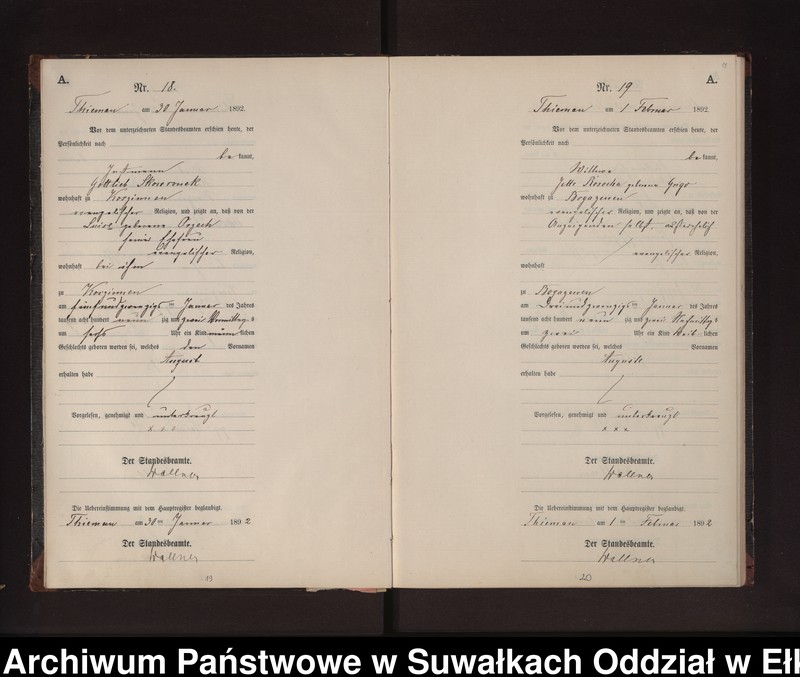 A.
Nr. 18.
Thiemau am 30 Januar 1892.
Vor dem unterzeichneten Standesbeamten erschien heute, der
Persönlichkeit nach
be kannt,
Gottlieb Skowronek
wohnhaft zu
evangelischer Religion, und zeigte an, daß von der
Luise geborene
seiner Ehefrau
evangelischer Religion,
wohnhaft bei ihm
zu
am fünfundzwanzigsten Januar des Jahres
tausend acht hundert neun zig und zwei Vormittags
um sechs Uhr ein Kind männ lichen
Geschlechts geboren worden sei, welches den Vornamen
August
erhalten habe
Vorgelesen, genehmigt und unterkreuzt
x x x
Der Standesbeamte.
Wallner
Die Uebereinstimmung mit dem Hauptregister beglaubigt.
Thiemau am 30ten Januar 1892
Der Standesbeamte.
Wallner
19
A.
Nr. 19
Thiemau am 1 Februar 1892.
Vor dem unterzeichneten Standesbeamten erschien heute, der
Persönlichkeit nach
be kannt,
Wittwe
geborene
wohnhaft zu Bogazewen
evangelischer Religion, und zeigte an, daß von der
Anzeigenden selbst, außerehelich
evangelischer Religion,
wohnhaft
zu Bogazewen
am Dreiundzwanzigsten Januar des Jahres
tausend acht hundert neun zig und zwei Nachmittags
um zwei Uhr ein Kind weib lichen
Geschlechts geboren worden sei, welches Vornamen
Auguste
erhalten habe
Vorgelesen, genehmigt und unterkreuzt
x x x
Der Standesbeamte.
Wallner
Die Uebereinstimmung mit dem Hauptregister beglaubigt.
Thiemau am 1ten Februar 1892
Der Standesbeamte.
Wallner
20
Archiwum Państwowe w Suwałkach Oddział w Ełk